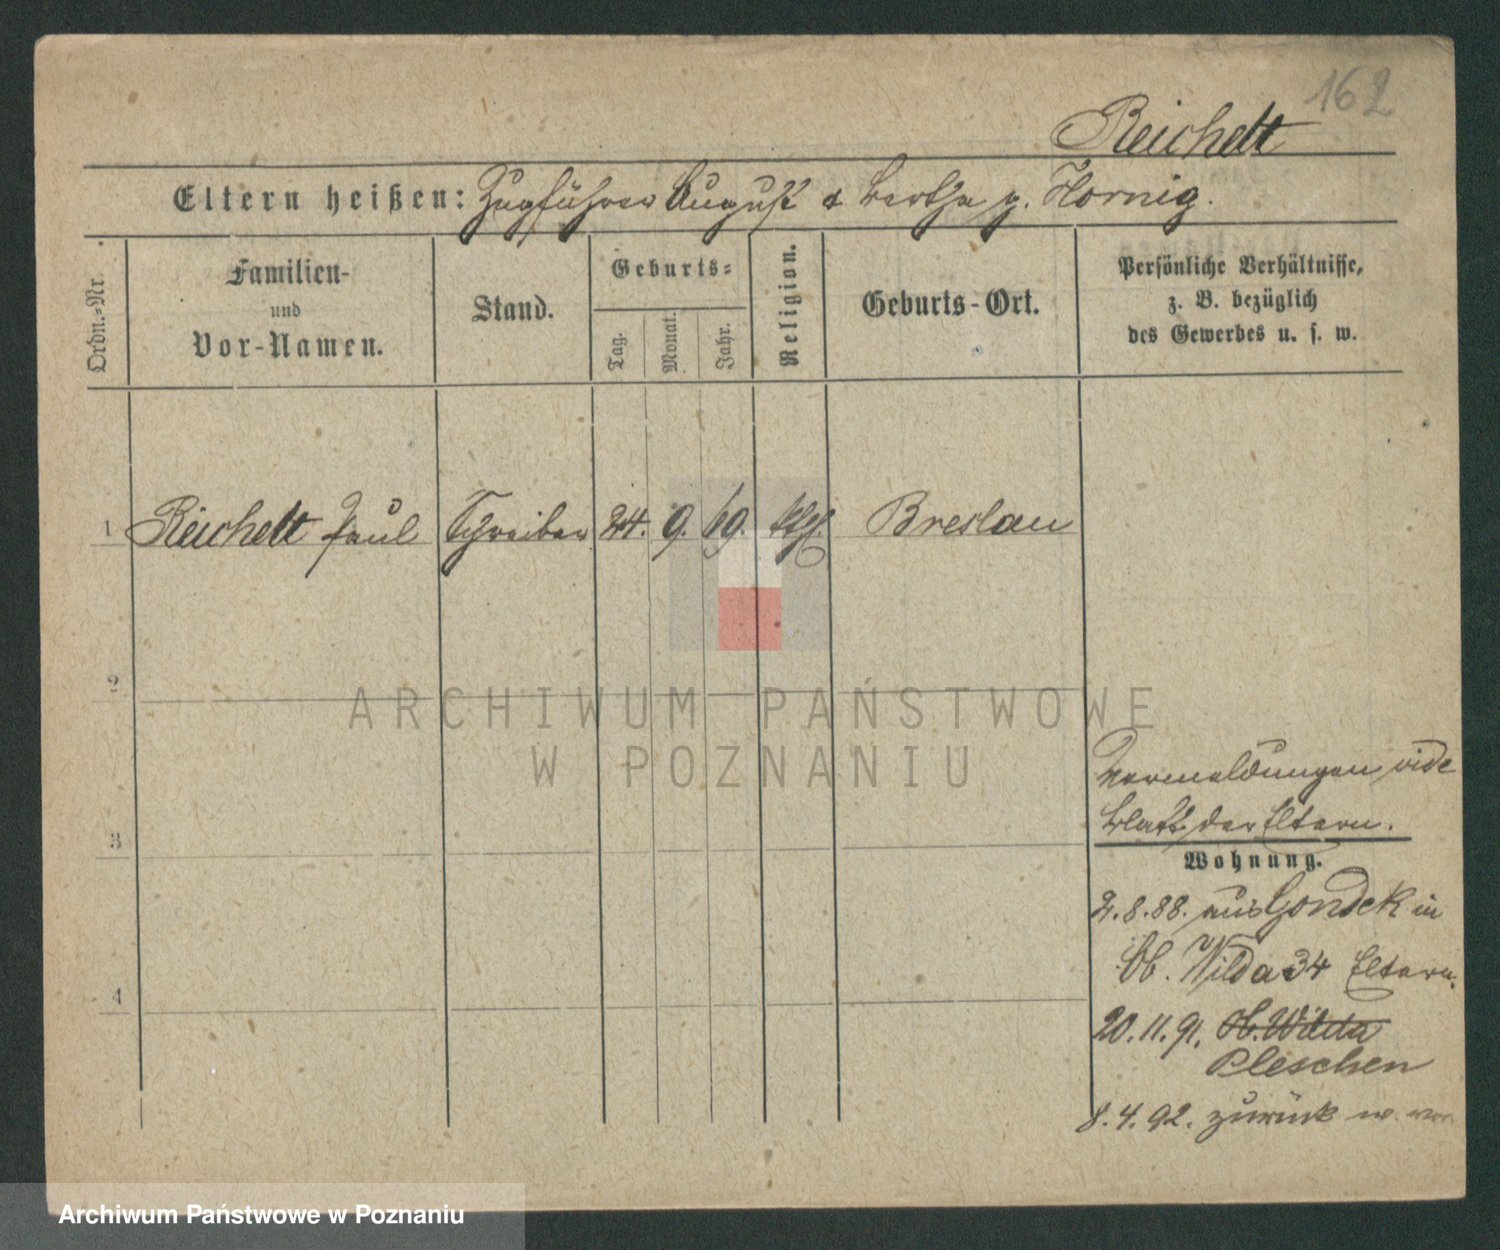 162
Reichelt
Eltern heißen: Zugführer August & Bertha g. Hornig.
Ordn.-Nr.
Familien-
und
Vor-Namen.
Stand.
Geburts-
Tag.
Monat.
Jahr.
Religion.
Geburts-Ort.
Persönliche Verhältnisse,
z. B. bezüglich
des Gewerbes u. s. w.
1 Reichelt Paul Schreiber 24. 9. 69. kth. Breslau
2
ARCHIWUM PAŃSTWOWE
W POZNANIU
Vermeldungen vide
Blatt der Eltern.
3
Wohnung.
2.8.88. aus Gondek in
Ob. Wilda 34 Eltern.
4
20.11.91. Ob. Wilda
Pleschen
8.4.92. zurück w. von
Archiwum Państwowe w Poznaniu